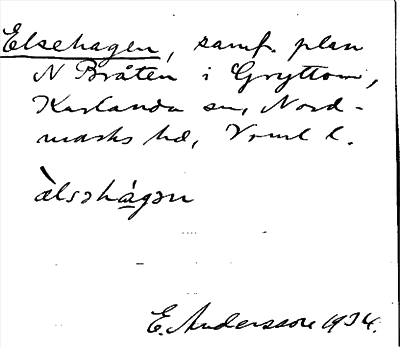 Elsehagen, samf. plan
N Bråten i Gryttom,
Karlanda sn, Nord-
marks hd, Vrml l.
àlsɘhágɘn
E. Andersson 1934.